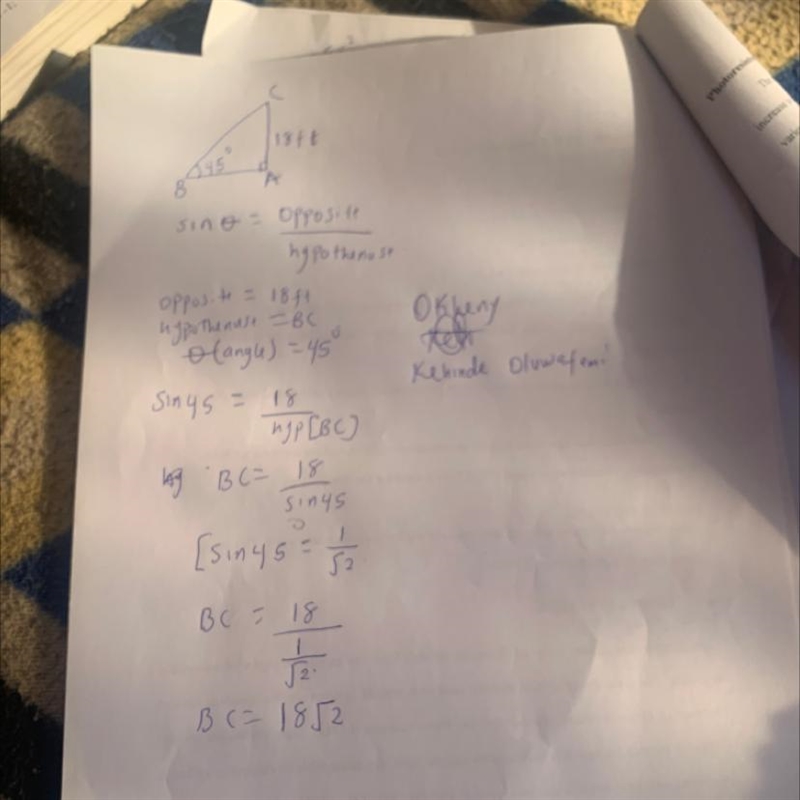 C
18ft
45°
B
A
sinθ = opposite
hypothenuse
opposite = 18ft
hypothenuse = BC
θ(angle) = 45°
Okheny
Kehinde Oluwafemi
Sin45 = 18
hyp[BC]
BC = 18
sin45
[Sin45° = 1
√2
BC = 18
1
√2
BC = 18√2
Photoresp
Th
increase
vari